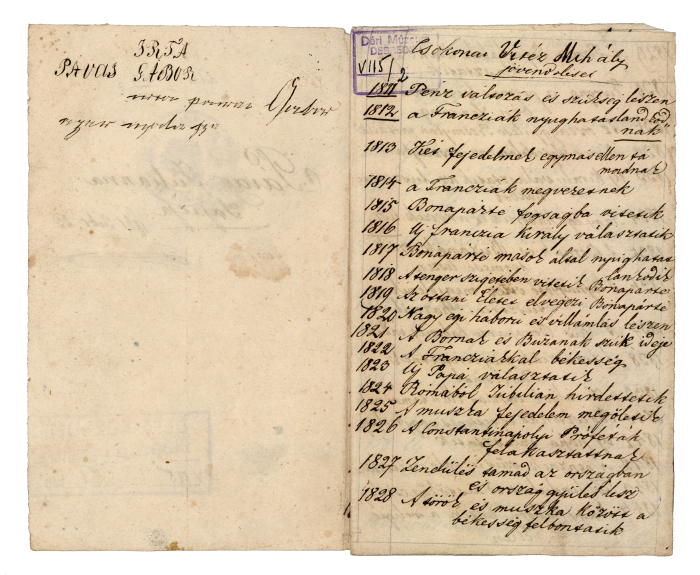 IRTA
PAVAS GABOR
Gabor
Déri Múze
DEBREC
VII5/2
Csokonai Vitéz Mihály
jövendölései
1811 Penz valtozás és szükség leszen
1812 a Francziák nyughatatlankod-
nak
1813 Két fejedelmek egymás ellen tá
madnak
1814 a Francziak megveretnek
1815 Bonaparte fogságba vitetik
1816 Uj franczia Király választatik
1817 Bonaparte mások által nyughatat
lankodik
1818 A tenger szigetében vitetik Bonaparte
1819 Az ottani Életét elvegezi Bonaparte
1820 Nagy egi háboru és villámlás leszen
1821 A Bornak és Buzanak szük ideje
1822 A Francziákkal békesség
1823 Uj Pápá választatik
1824 Romából Jubilian hirdettetik
1825 A muszka fejedelem megöletik
1826 A Constantinápolyi Próféták
felakasztatnak
1827 Zendülés támad az országban
és ország gyülés lesz
1828 A török és muszka között a
békesség felbontatik